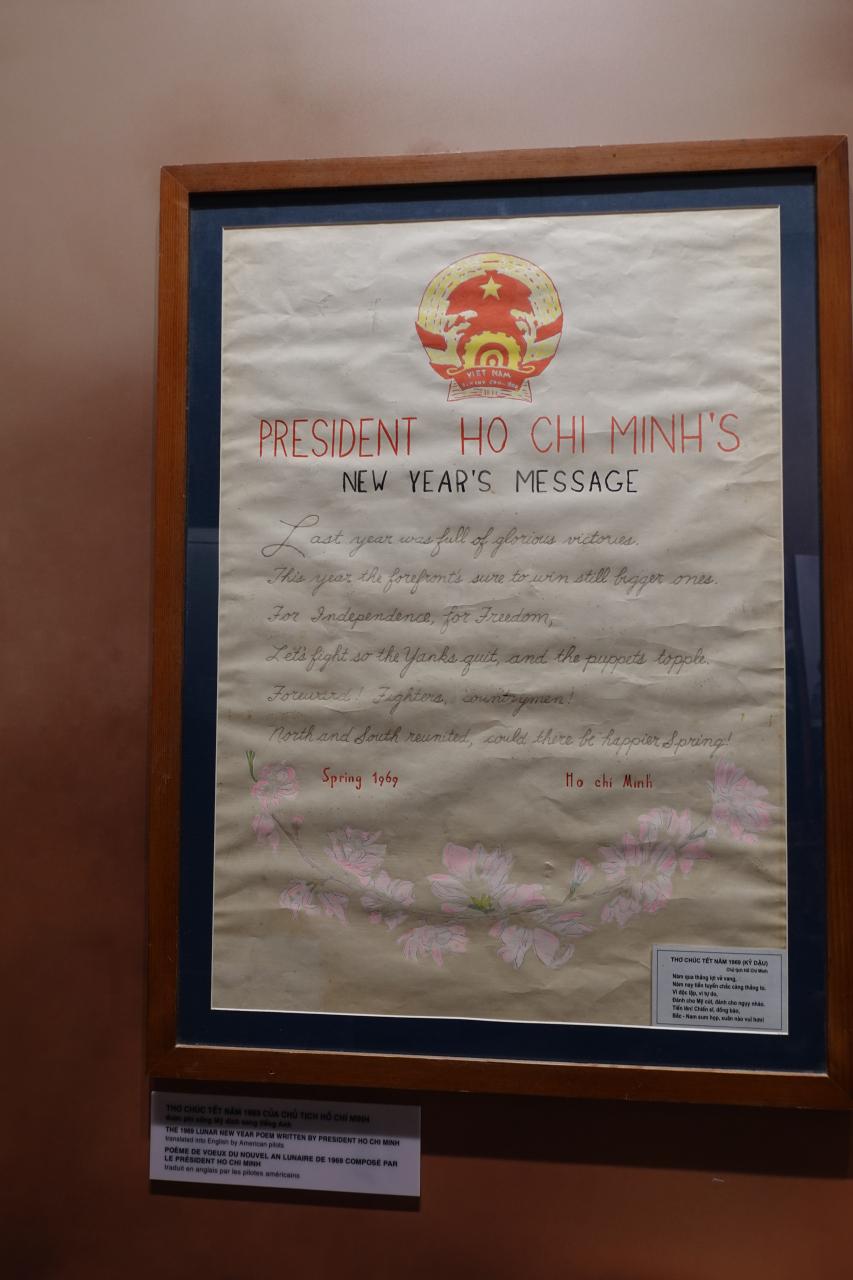 VIET NAM
PRESIDENT HO CHI MINH'S
NEW YEAR'S MESSAGE
Last year was full of glorious victories.
This year the forefront's sure to win still bigger ones.
For Independence, for Freedom,
Let's fight so the Yanks quit, and the puppets topple.
Foreward! Fighters, countrymen!
North and South reunited, could there be happier Spring!
Spring 1969
Ho chi Minh
THƠ CHÚC TẾT NĂM 1969 (KỶ DẬU)
Chủ tịch Hồ Chí Minh
Năm qua thắng lợi vẻ vang,
Năm nay tiền tuyến chắc càng thắng to.
Vì độc lập, vì tự do,
Đánh cho Mỹ cút, đánh cho ngụy nhào.
Tiến lên! Chiến sĩ, đồng bào,
Bắc - Nam sum họp, xuân nào vui hơn!
THƠ CHÚC TẾT NĂM 1969 CỦA CHỦ TỊCH HỒ CHÍ MINH
được phi công Mỹ dịch sang tiếng Anh
THE 1969 LUNAR NEW YEAR POEM WRITTEN BY PRESIDENT HO CHI MINH
translated into English by American pilots
POÈME DE VOEUX DU NOUVEL AN LUNAIRE DE 1969 COMPOSÉ PAR
LE PRÉSIDENT HO CHI MINH
traduit en anglais par les pilotes américains